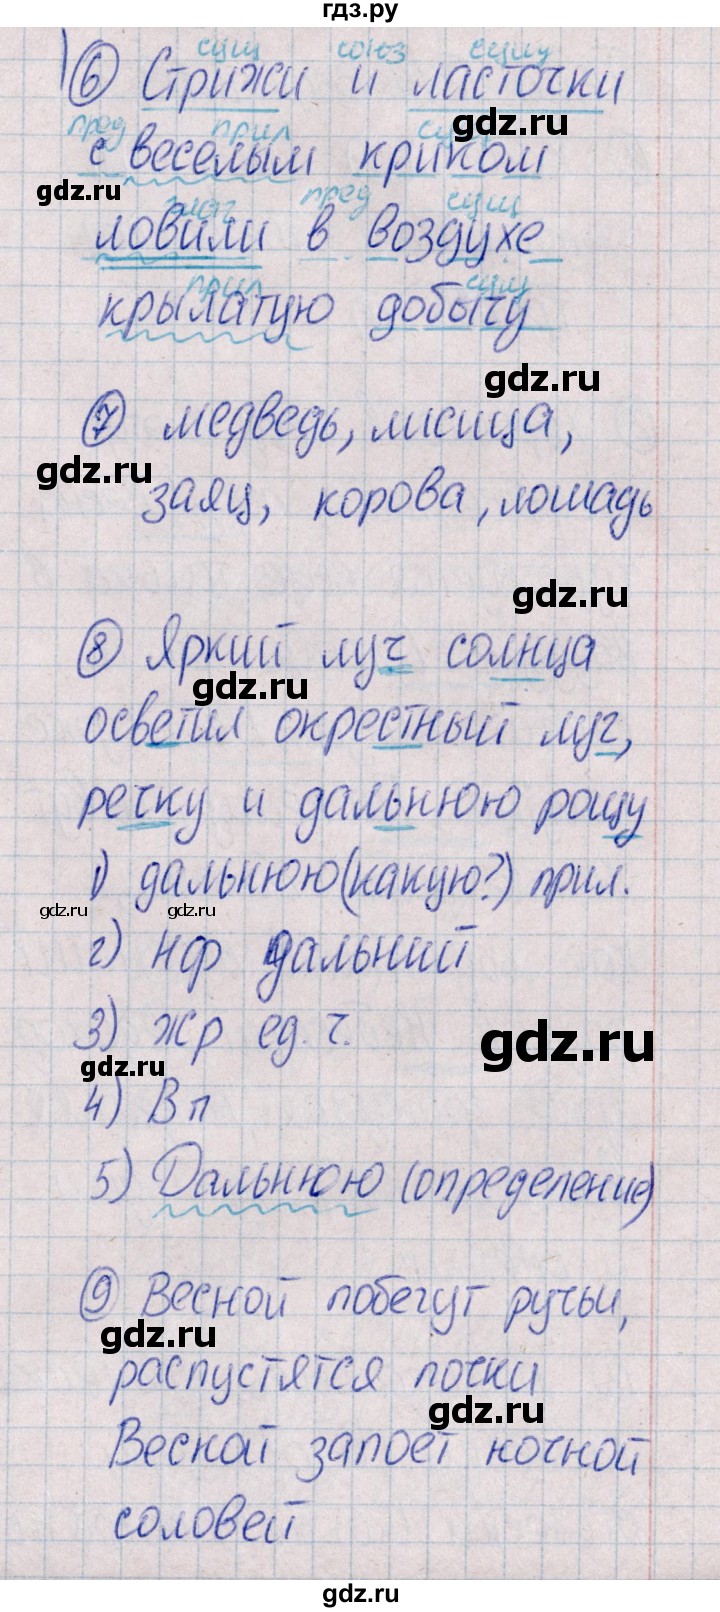 гдз.ру
сущ союз сущ
6 Стрижи и ласточки
gdz.ru
пред прил сущ
с веселым криком
gdz.ru
глаг пред сущ
ловили в воздухе
прил сущ
крылатую добычу
gdz.ru
7 медведь, лисица,
gdz.ru
заяц, корова, лошадь
gdz.ru
8 Яркий луч солнца
gdz.ru
осветил окрестный луг,
речку и дальнюю рощу
1) дальнюю (какую?) прил.
gdz.ru gdz.ru
2) НФ дальний
3) жр ед. ч.
gdz.ru
gdz.ru
4) В п
5) Дальнюю (определение)
9 Весной побегут ручьи,
gdz.ru
распустятся почки
gdz.ru
Весной запоет ночной
соловей
gdz.ru